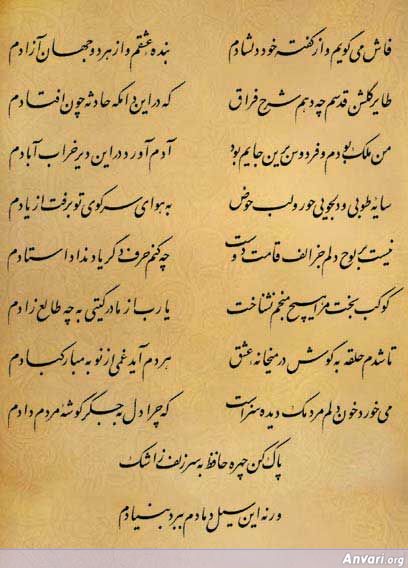 فاش می گویم و از گفته خود دلشادم بنده عشقم و از هر دو جهان آزادم
طایر گلشن قدسم چه دهم شرح فراق که در این دامگه حادثه چون افتادم
من ملک بودم و فردوس برین جایم بود آدم آورد در این دیر خراب آبادم
سایه طوبی و دلجویی حور و لب حوض به هوای سر کوی تو برفت از یادم
نیست بر لوح دلم جز الف قامت دوست چه کنم حرف دگر یاد نداد استادم
کوکب بخت مرا هیچ منجم نشناخت یا رب از مادر گیتی به چه طالع زادم
تا شدم حلقه به گوش در میخانه عشق هر دم آید غمی از نو به مبارکبادم
می خورد خون دلم مردمک دیده سزاست که چرا دل به جگرگوشه مردم دادم
پاک کن چهره حافظ به سر زلف ز اشک
ور نه این سیل دمادم ببرد بنیادم
Anvari.org